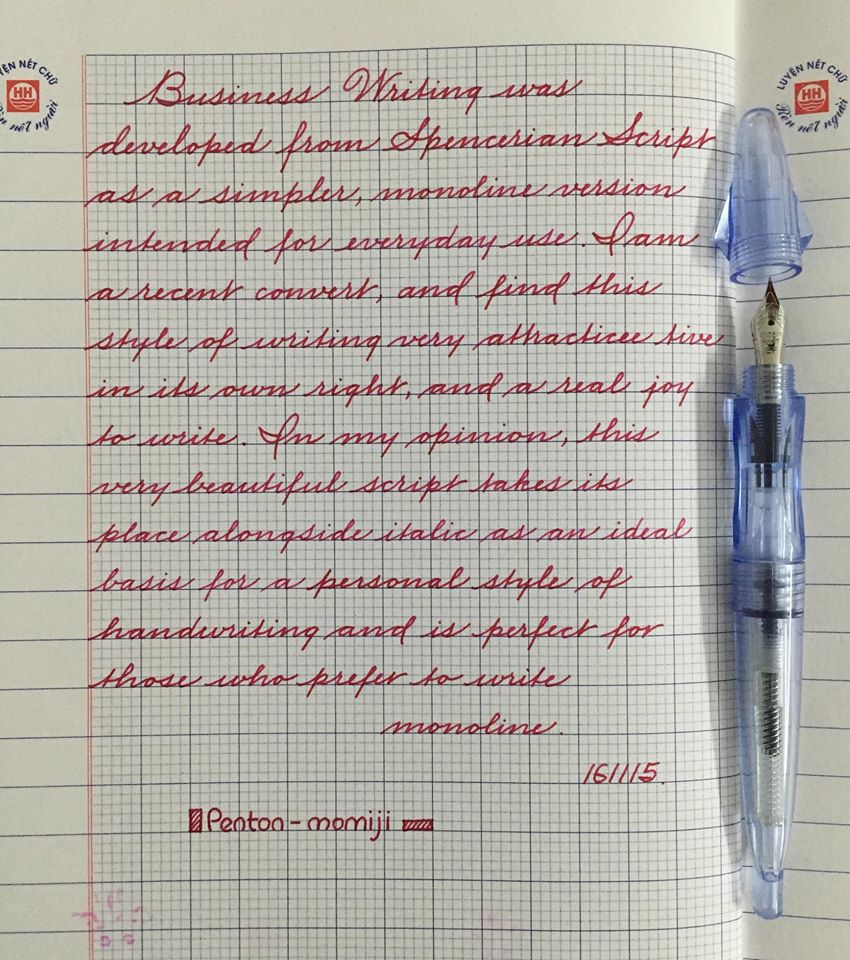 LUYỆN NÉT CHỮ
HH
Rèn nết người
LUYỆN NÉT CHỮ
HH
Rèn nết người
Business Writing was
developed from Spencerian Script
as a simpler, monoline version
intended for everyday use. I am
a recent convert, and find this
style of writing very attracticee tive
in its own right, and a real joy
to write. In my opinion, this
very beautiful script takes its
place alongside italic as an ideal
basis for a personal style of
handwriting and is perfect for
those who prefer to write
monoline.
161115.
Penton - momiji